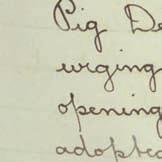 Pig De
urging
opening
adopted